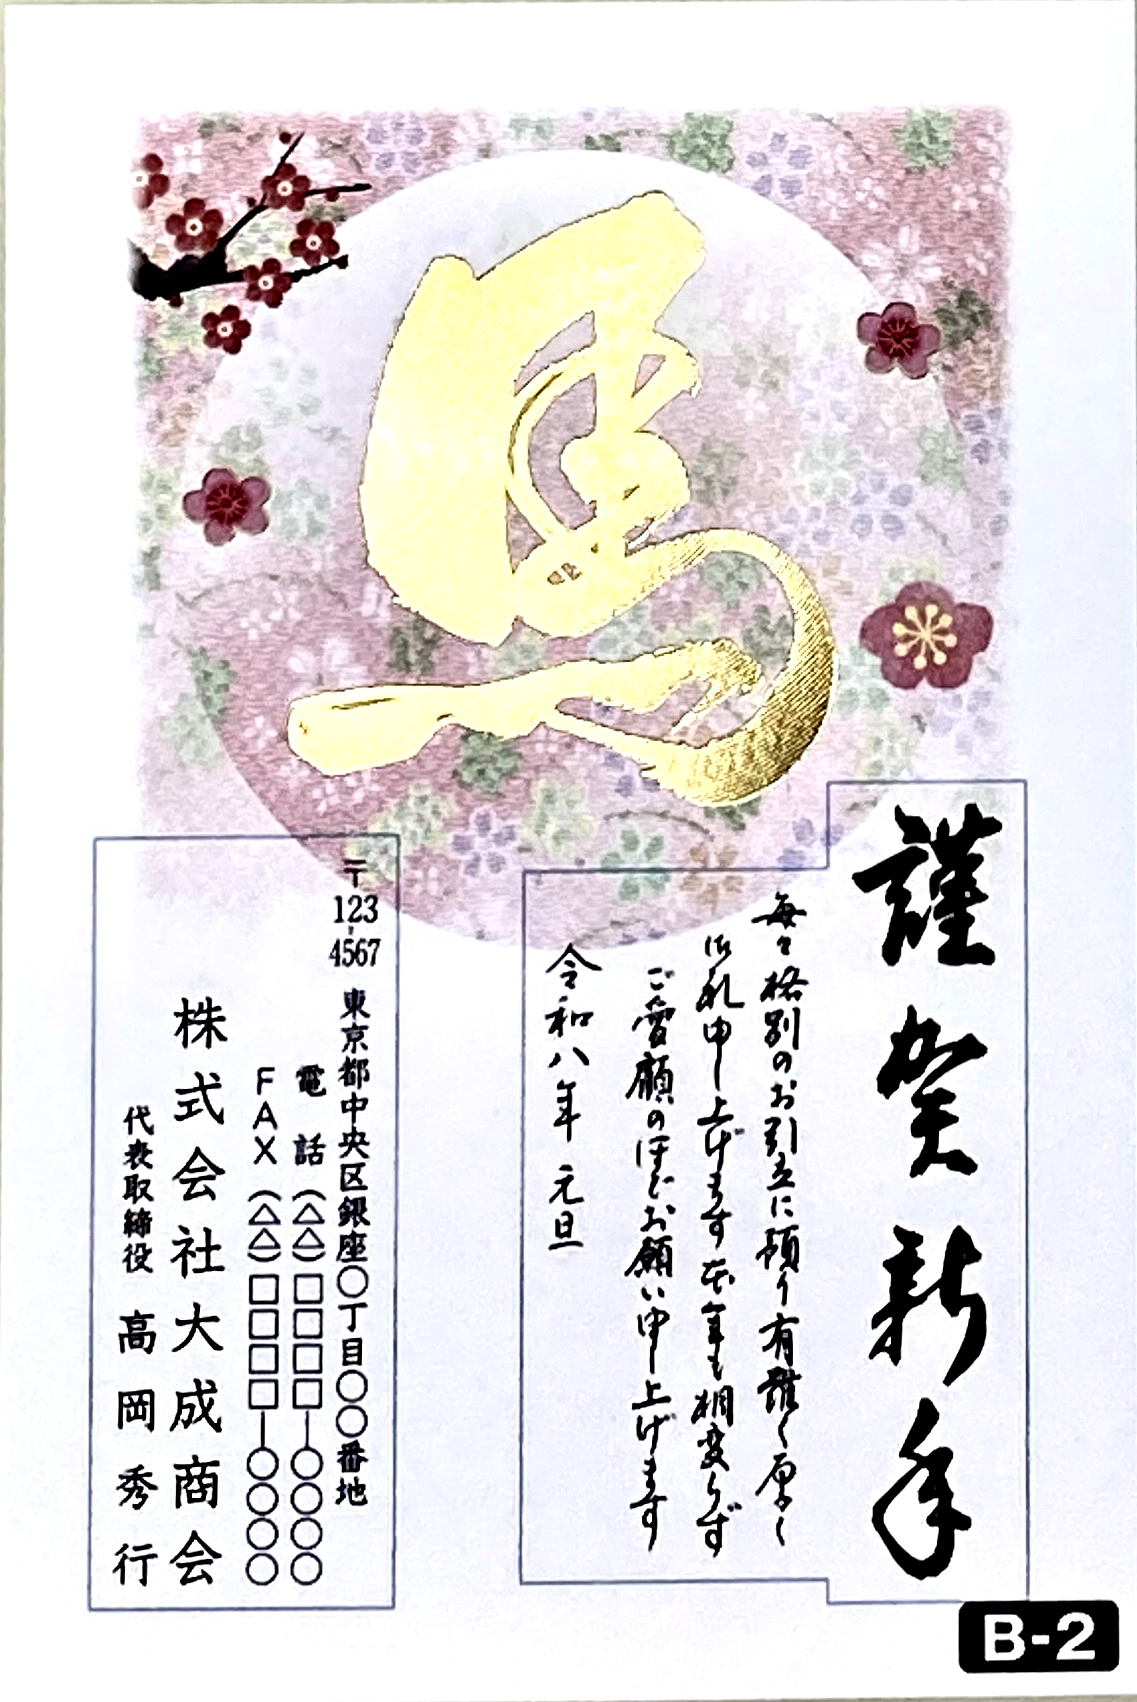 馬
謹賀新年
毎々格別のお引立に預り有難く厚く
御礼申し上げます本年も相変らず
ご愛顧のほどお願い申し上げます
令和八年 元旦
〒123-4567 東京都中央区銀座〇丁目〇〇番地
電話(△△)□□□□―〇〇〇〇
FAX(△△)□□□□―〇〇〇〇
株式会社大成商会
代表取締役 高岡秀行
B-2